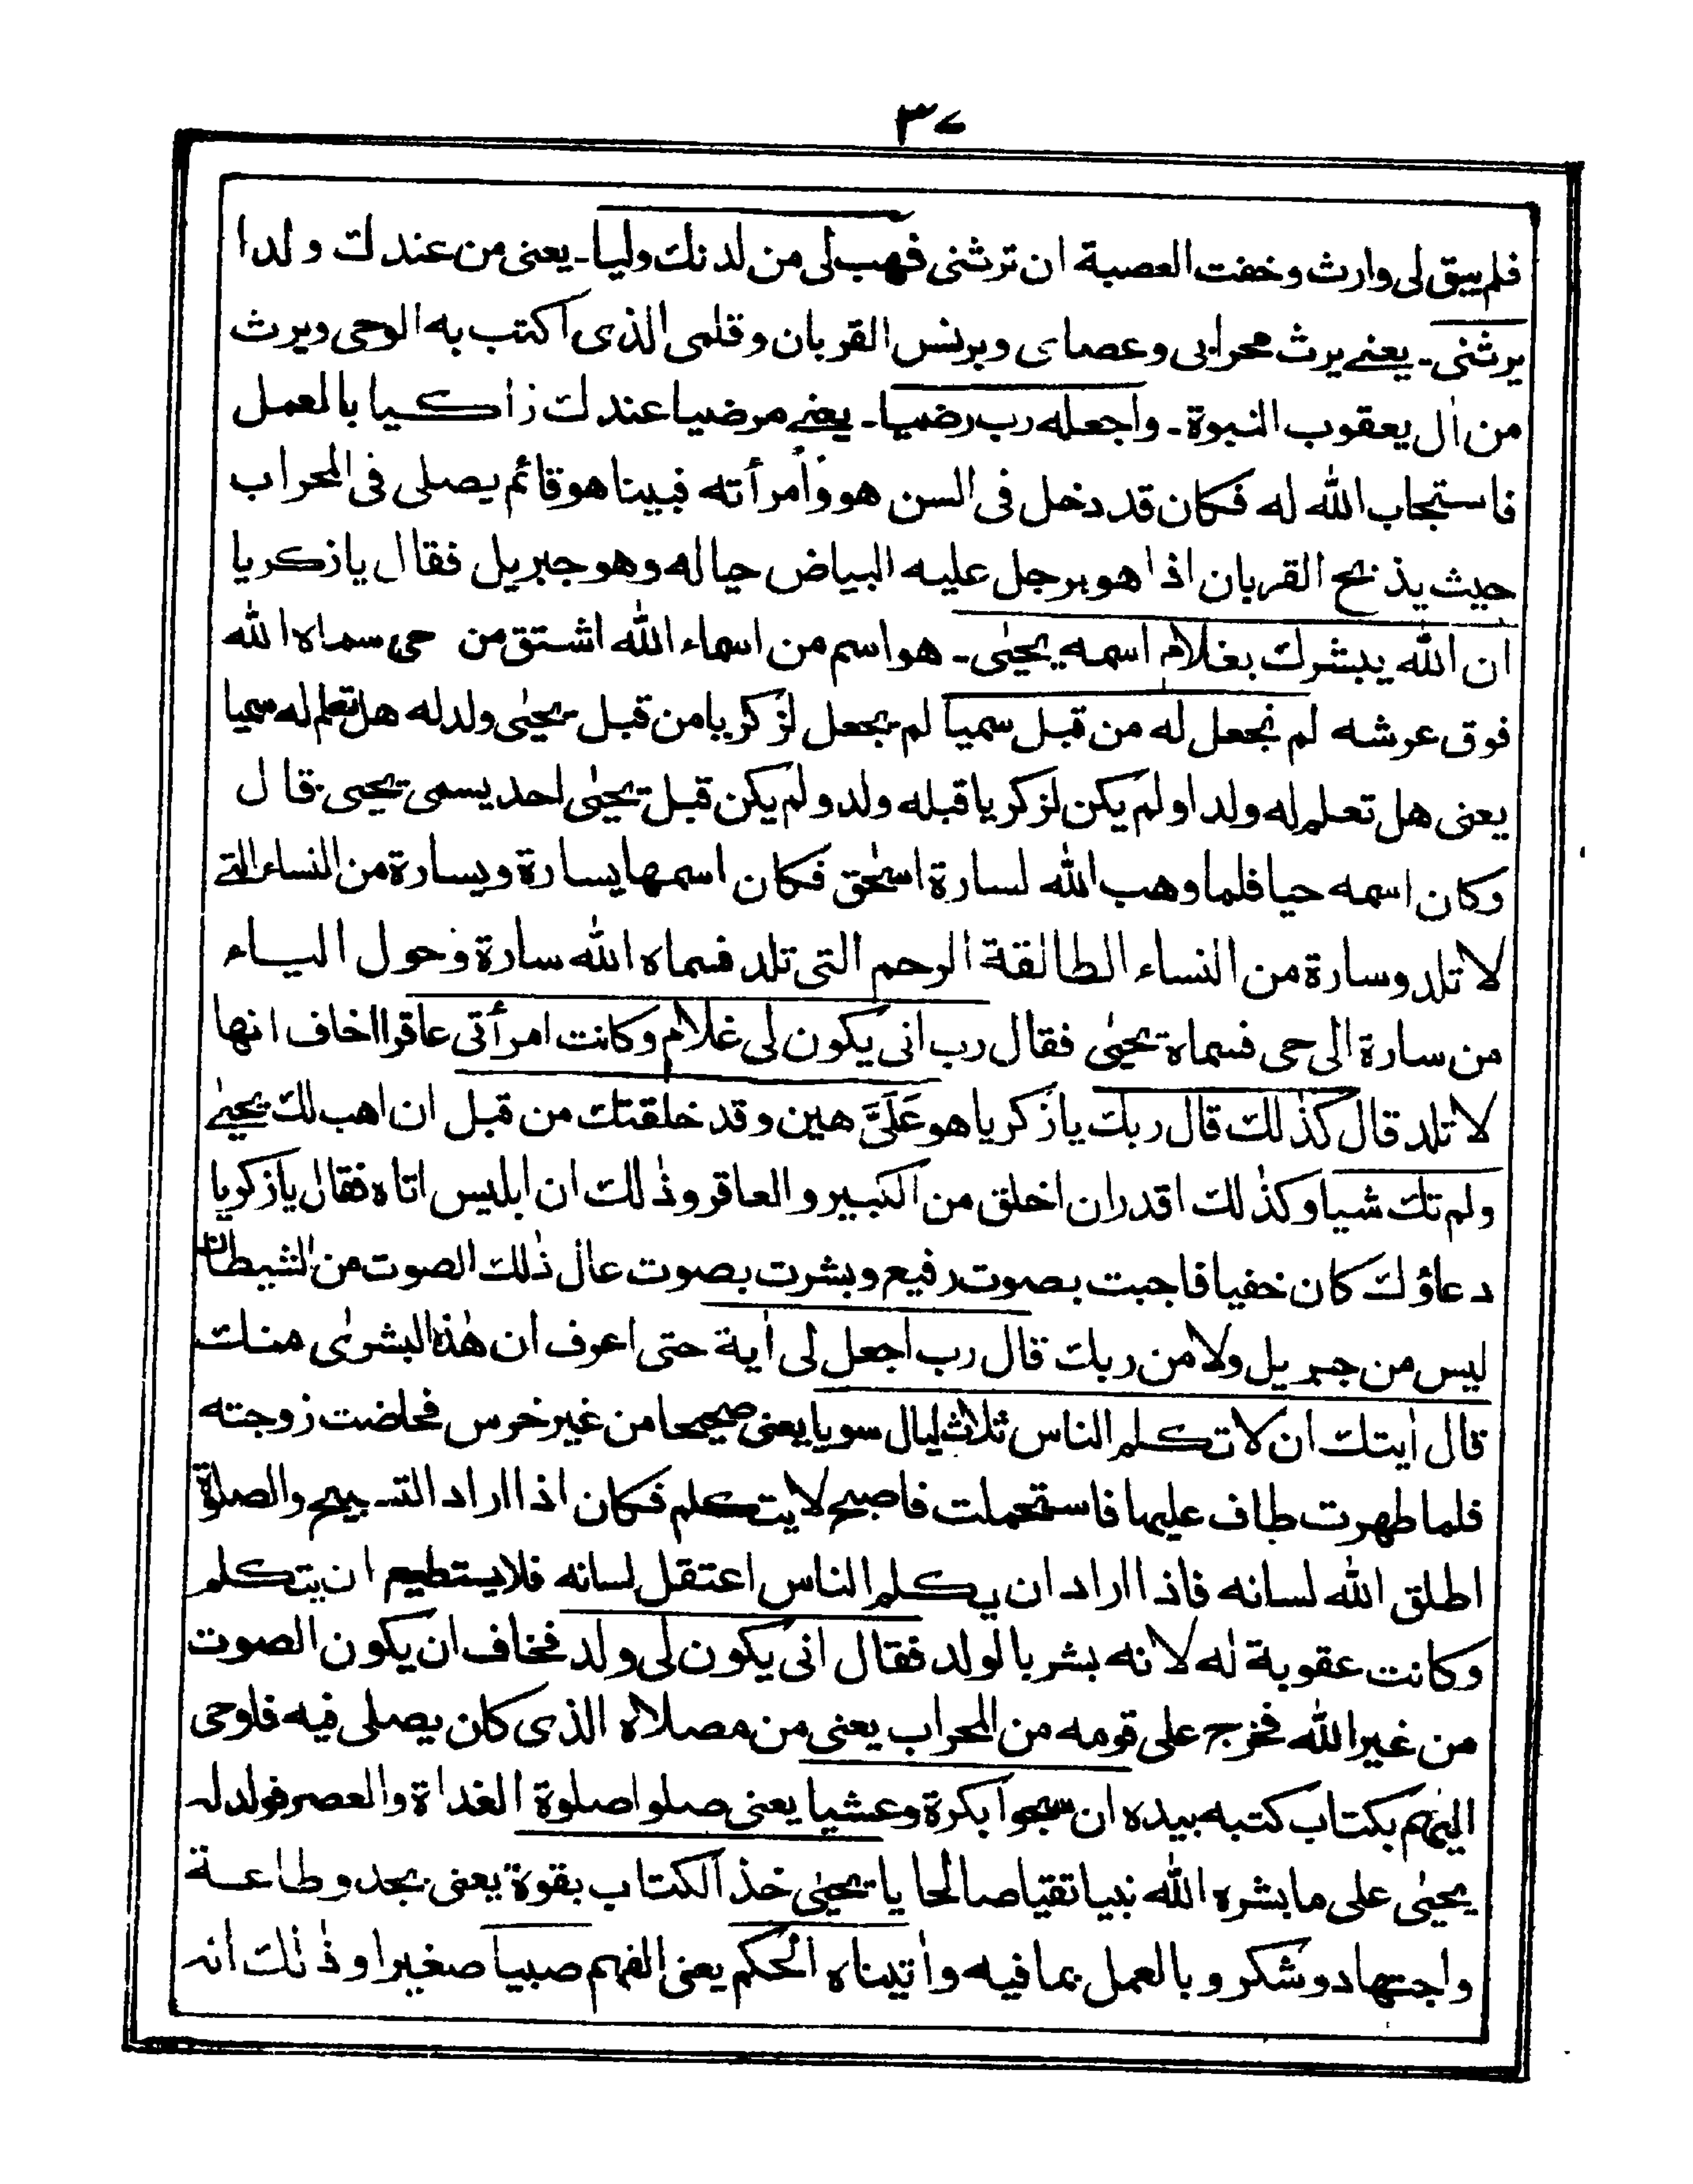 ٣٧
فلم يبق لى وارث وخفت العصبة ان ترثنى فهب لى من لدنك وليا۔ يعنى من عندك ولدا
يرثنى۔ يعنے يرث محرابى وعصاى وبرنس القربان وقلمى الذى اكتب به الوحى ويرث
من اٰل يعقوب النبوة۔ واجعله رب رضيا۔ يعنے مرضيا عندك زاكيا بالعمل
فاستجاب الله له فكان قد دخل فى السن هو وامرأته فبينا هو قائم يصلى فى المحراب
حيث يذبح القربان اذا هو برجل عليه البياض حياله وهو جبريل فقال يا زكريا
ان الله يبشرك بغلام اسمه يحيٰى۔ هو اسم من اسماء الله اشتق من حى سماه الله
فوق عرشه لم نجعل له من قبل سميا لم يجعل لزكريا من قبل يحيٰى ولد له هل تعلم له سميا
يعنى هل تعلم له ولدا ولم يكن لزكريا قبله ولد ولم يكن قبل يحيٰى احد يسمى يحيى قال
وكان اسمه حيا فلما وهب الله لسارة اسحٰق فكان اسمها يسارة ويسارة من النساء التے
لا تلد وسارة من النساء الطالقة الرحم التى تلد فسماه الله سارة وحول الياء
من سارة الى حى فسماه يحيٰى فقال رب انى يكون لى غلام وكانت امرأتى عاقرا اخاف انها
لا تلد قال كذٰلك قال ربك يا زكريا هو عَلَىَّ هين وقد خلقتك من قبل ان اهب لك يحيٰے
ولم تك شيا وكذٰلك اقدر ان اخلق من الكبير والعاقر وذٰلك ان ابليس اتاه فقال يا زكريا
دعاؤك كان خفيا فاجبت بصوت رفيع وبشرت بصوت عال ذٰلك الصوت من الشيطان
ليس من جبريل ولا من ربك قال رب اجعل لى اٰية حتى اعرف ان هٰذه البشرٰى منك
قال اٰيتك ان لا تكلم الناس ثلاث ليال سويا يعنى صحيحا من غير خرس فحاضت زوجته
فلما طهرت طاف عليها فاستحملت فاصبح لا يتكلم فكان اذا اراد التسبيح والصلوٰة
اطلق الله لسانه فاذا اراد ان يكلم الناس اعتقل لسانه فلا يستطيع ان يتكلم
وكانت عقوبة له لانه بشر بالولد فقال انى يكون لى ولد فخاف ان يكون الصوت
من غير الله فخرج على قومه من المحراب يعنى من مصلاه الذى كان يصلى فيه فاوحى
اليهم بكتاب كتبه بيده ان سبحوا بكرة وعشيا يعنى صلوا صلوة الغداة والعصر فولد له
يحيٰى على ما بشره الله نبيا تقيا صالحا يا يحيٰى خذ الكتاب بقوة يعنى بجد وطاعة
واجتهاد وشكر وبالعمل بما فيه واٰتيناه الحكم يعنى الفهم صبيا صغيرا وذٰلك انه